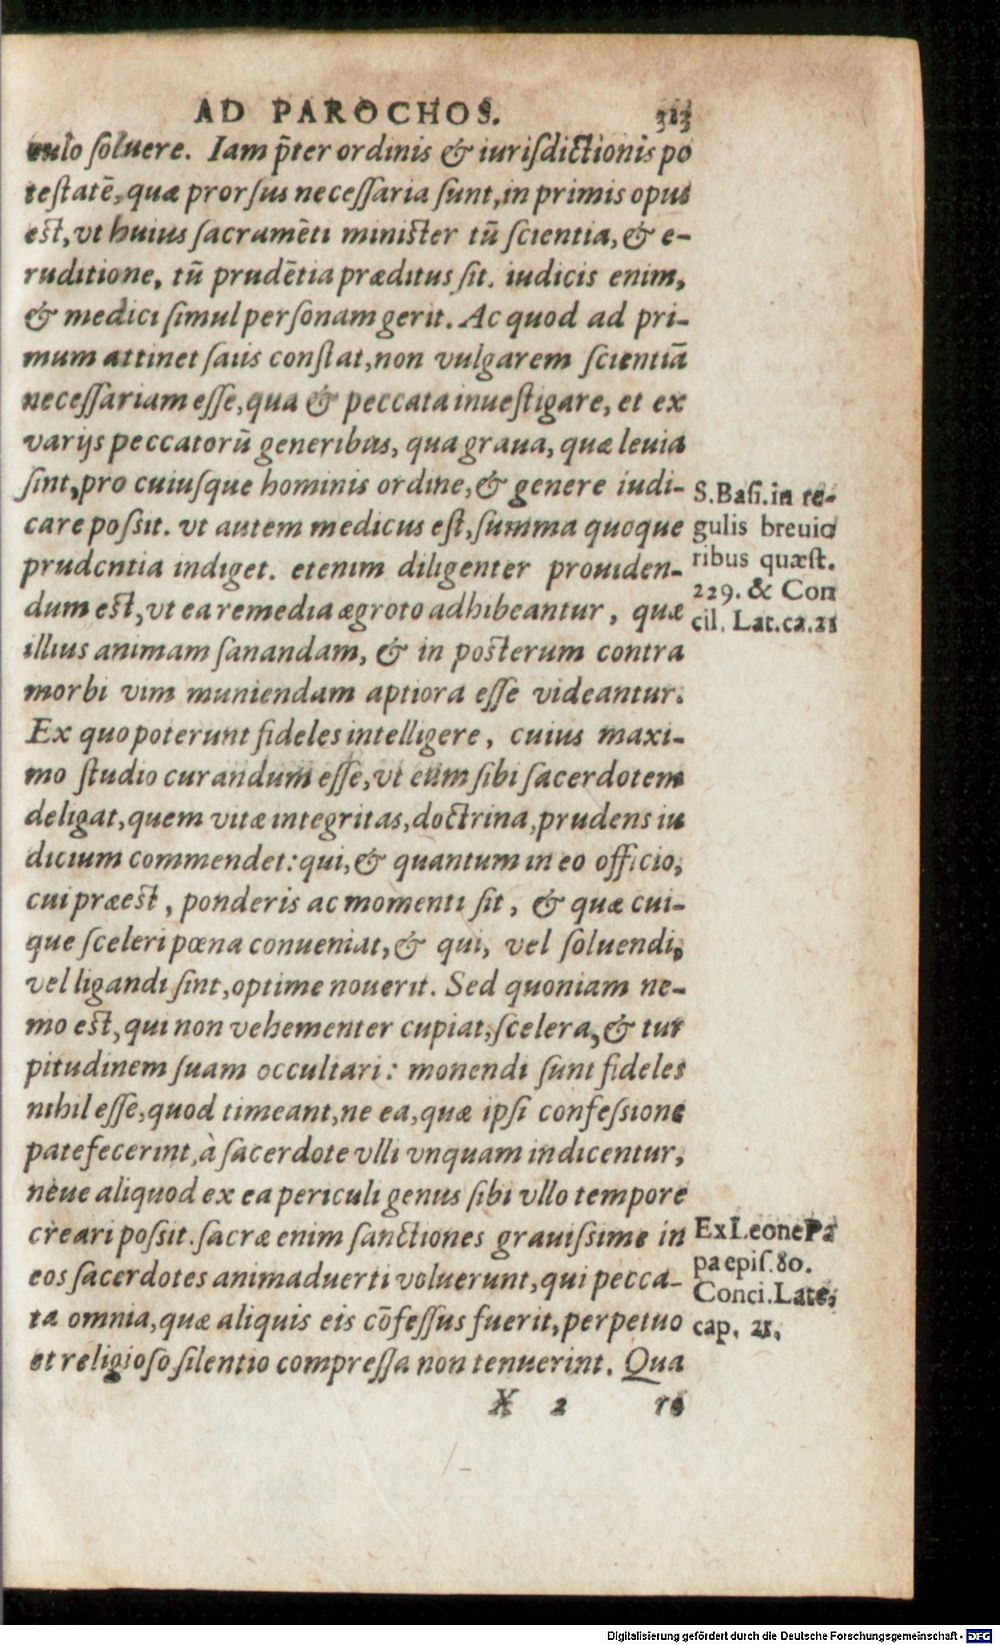 AD PAROCHOS. 323
culo soluere. Iam p̃ter ordinis & iurisdictionis po
testatẽ, quæ prorsus necessaria sunt, in primis opus
est, vt huius sacramẽti minister tũ scientia, & e-
ruditione, tũ prudẽtia præditus sit. iudicis enim,
& medici simul personam gerit. Ac quod ad pri-
mum attinet satis constat, non vulgarem scientiã
necessariam esse, qua & peccata inuestigare, et ex
varijs peccatorũ generibus, qua graua, quæ leuia
sint, pro cuiusque hominis ordine, & genere iudi-
care possit. vt autem medicus est, summa quoque
prudentia indiget. etenim diligenter prouiden-
dum est, vt ea remedia ægroto adhibeantur, quæ
illius animam sanandam, & in posterum contra
morbi vim muniendam aptiora esse videantur.
Ex quo poterunt fideles intelligere, cuius maxi-
mo studio curandum esse, vt eum sibi sacerdotem
deligat, quem vitæ integritas, doctrina, prudens iu
dicium commendet: qui, & quantum in eo officio,
cui præest, ponderis ac momenti sit, & quæ cui-
que sceleri pœna conueniat, & qui, vel soluendi,
vel ligandi sint, optime nouerit. Sed quoniam ne-
mo est, qui non vehementer cupiat, scelera, & tur
pitudinem suam occultari: monendi sunt fideles
nihil esse, quod timeant, ne ea, quæ ipsi confessione
patefecerint, à sacerdote vlli vnquam indicentur,
neue aliquod ex ea periculi genus sibi vllo tempore
creari possit. sacræ enim sanctiones grauissime in
eos sacerdotes animaduerti voluerunt, qui pecca-
ta omnia, quæ aliquis eis cõfessus fuerit, perpetuo
et religioso silentio compressa non tenuerint. Qua
X 2 re
S. Basi. in re-
gulis breuio
ribus quæst.
229. & Con
cil. Lat. ca. 21
Ex Leone Pa
pa epis. 80.
Conci. Late.
cap. 21.
Digitalisierung gefördert durch die Deutsche Forschungsgemeinschaft - DFG